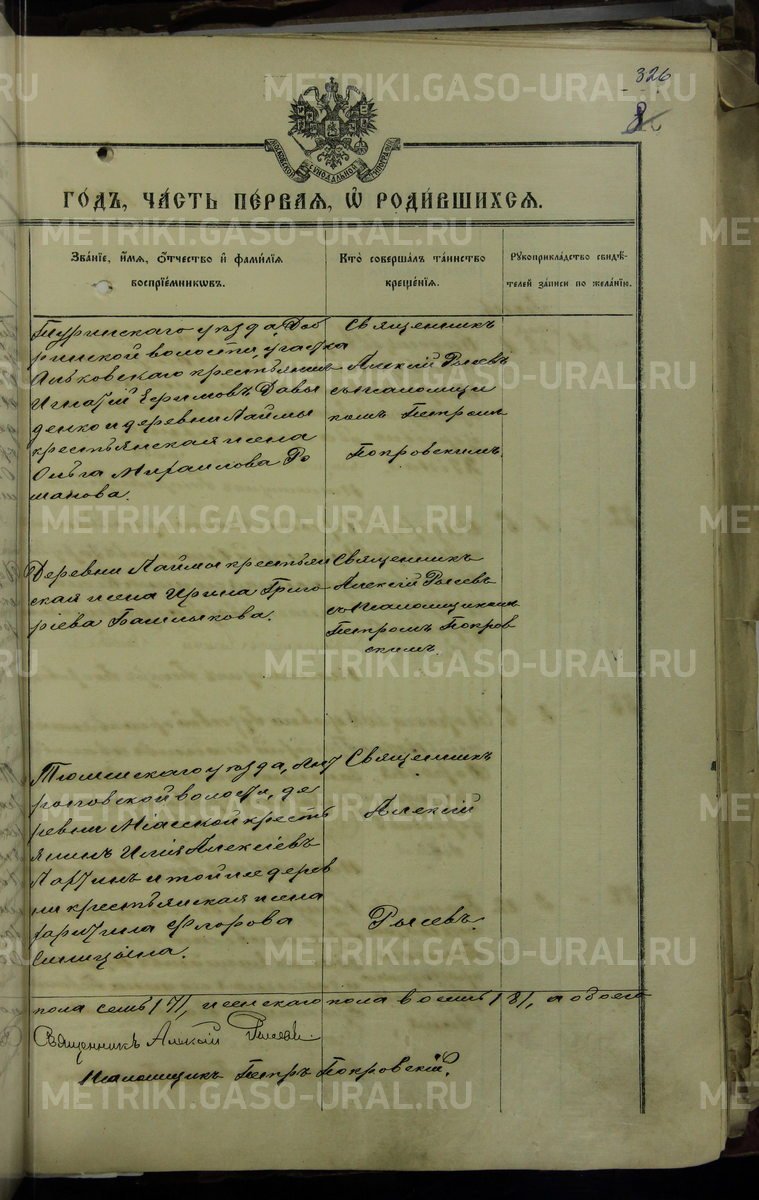 326
8
МОСКОВСКОЙ СѴНОДАЛЬНОЙ ТИПОГРАФІИ
ГО́ДЪ, ЧА́СТЬ ПЕ́РВАЯ, Ѡ РОДИ́ВШИХСЯ.
Зва́нїе, и́мя, о́тчество и фами́лїя воспрїе́мниковъ.
Кто̀ соверша́лъ та́инство креще́нїя.
Рꙋкоприкла́дство свидѣ́телей за́писи по жела́нїю.
Туринскаго уѣзда, Доб
ринской волости, участка
Ольковскаго крестьянинъ
Игнатій Ефимовъ Давы
денко и деревни Лаймы
крестьянская жена
Ольга Михаилова Ро
манова.
Священникъ
Алексій Рысевъ
съ псаломщи
комъ Петромъ
Покровскимъ.
Деревни Лаймы крестьян
ская жена Ирина Григо
ріева Башлыкова.
Священникъ
Алексій Рысевъ
съ псаломщикомъ
Петромъ Покров
скимъ.
Тюменскаго уѣзда,
волости, де
ревни Міасской кресть
янинъ Илія Алексіевъ
и той же дерев
ни крестьянская жена
Флорова
Синицына.
Священникъ
Алексій
Рысевъ.
пола семь /7/, женскаго пола восемь /8/, а обоего
Священникъ Алексій Рысевъ.
Псаломщикъ Петръ Покровскій.
METRIKI.GASO-URAL.RU